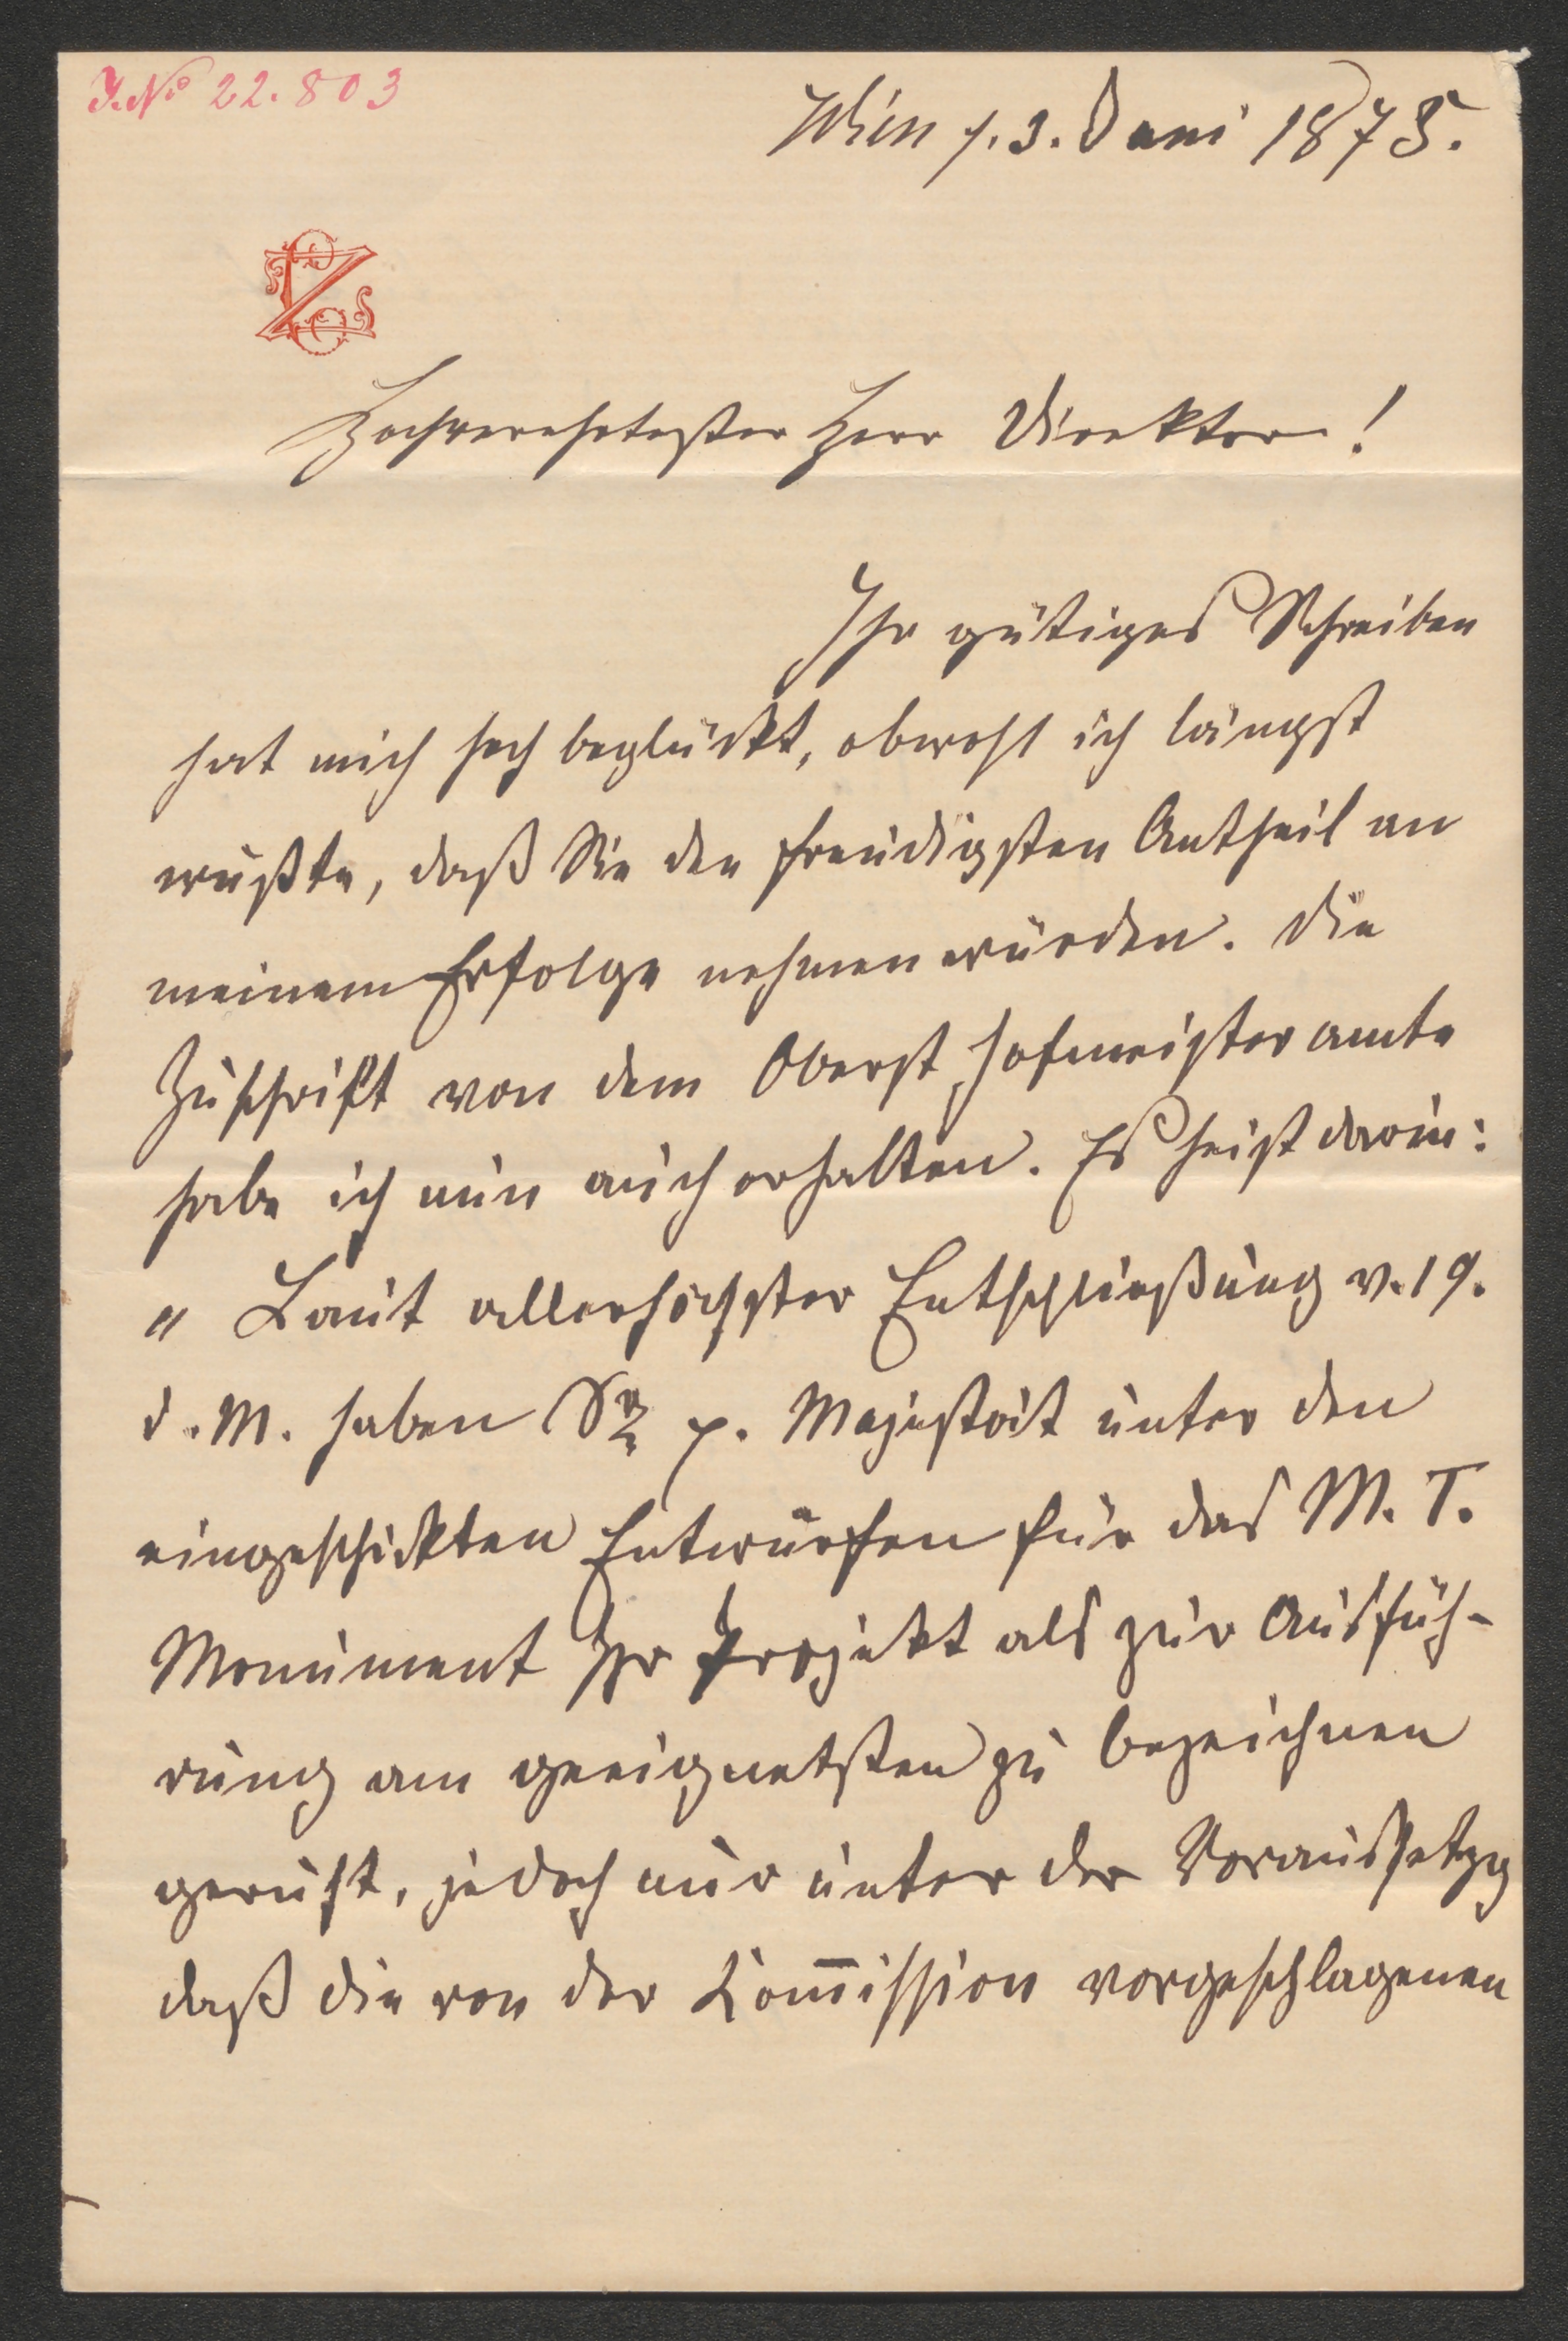 J. No 22.803
Wien d. 3. Juni 1875.
Hochverehrtester Herr Direktor!
Ihr gütiges Schreiben
hat mich hoch beglückt, obwohl ich längst
wußte, daß Sie den freudigsten Antheil an
meinem Erfolge nehmen würden. Die
Zuschrift von dem Obersthofmeisteramte
habe ich nun auch erhalten. Es heist darin:
" Laut allerhöchster Entschließung v. 19.
d. M. haben Se p. Majestät unter den
eingeschickten Entwürfen für das M. T.
Monument Ihr Projekt als zur Ausfüh-
rung am geeignetsten zu bezeichnen
geruht, jedoch nur unter der Voraussetzg
daß die von der Kom̅ission vorgeschlagenen